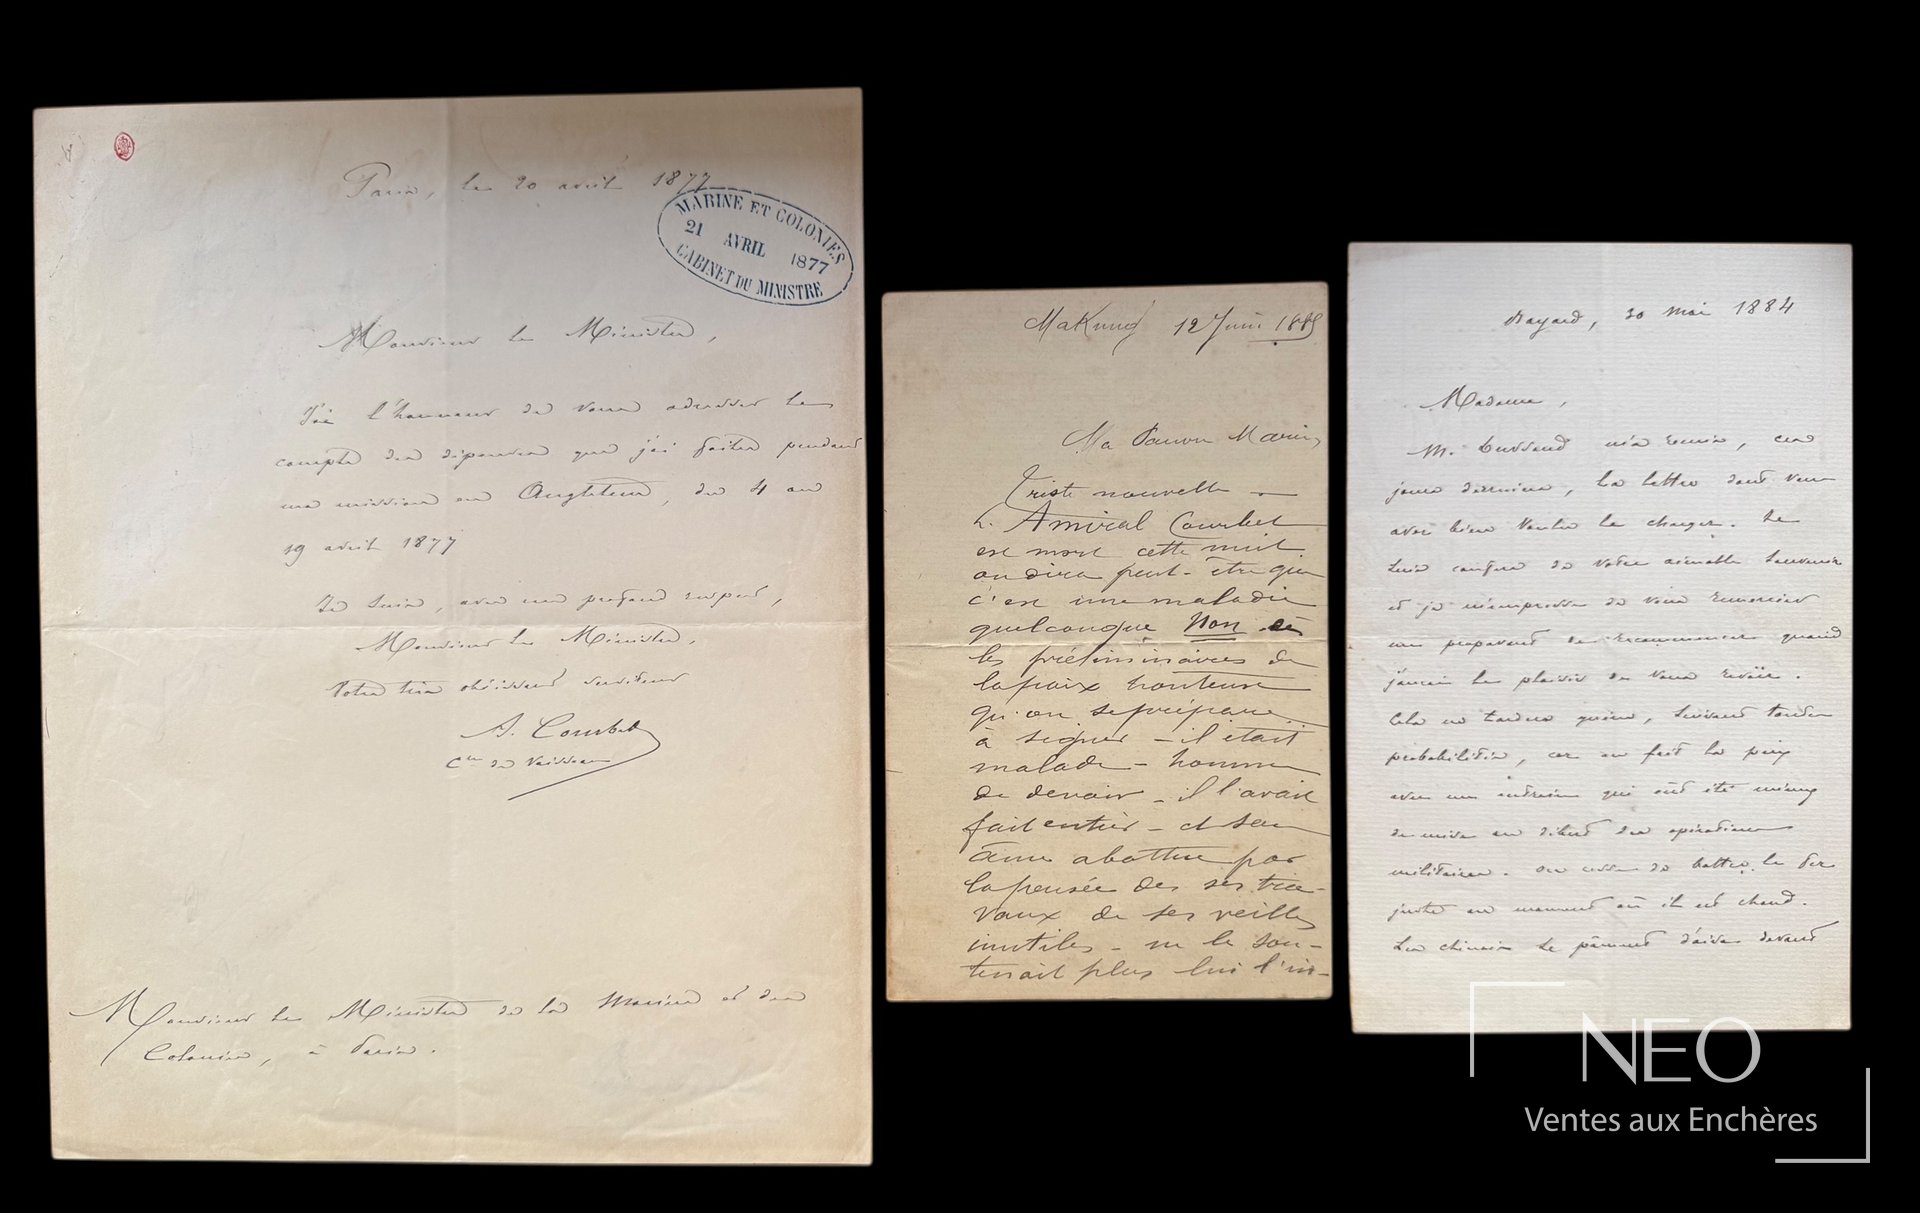 Paris, le 20 avril 1877
MARINE ET COLONIES
21 AVRIL 1877
CABINET DU MINISTRE
Monsieur le Ministre,
J'ai l'honneur de vous adresser le
compte des dépenses que j'ai faites pendant
ma mission en Angleterre, du 4 au
19 avril 1877
Je suis, avec un profond respect,
Monsieur le Ministre,
Votre très obéissant serviteur
A. Courbet
Cne de Vaisseau
Monsieur le Ministre de la Marine et des
Colonies, à Paris.
Makung 12 Juin 1885
Ma Pauvre Marie,
Triste nouvelle —
L'Amiral Courbet
est mort cette nuit
on dira peut-être que
c'est une maladie
quelconque Non
les préliminaires de
la paix honteuse
qu'on se prépare
à signer — il était
malade — homme
de devoir — il l'avait
fait entier — et son
âme abattue par
la pensée des ses tra-
vaux de ses veilles
inutiles — ne le sou-
tenait plus lui l'in-
Bayard, 30 mai 1884
Madame,
M. m'a remis, ces
jours derniers, la lettre dont vous
avez bien voulu le charger. Je
suis confus de votre aimable souvenir
et je m'empresse de vous remercier
me proposant de recommencer quand
j'aurai le plaisir de vous revoir.
Cela ne tardera guère, suivant toutes
probabilités, car on fait la paix
avec un entrain qui eût été mieux
de mise au début des opérations
militaires. On cesse de battre le fer
juste au moment où il est chaud.
Les chinois se pâment d'aise devant
NEO
Ventes aux Enchères